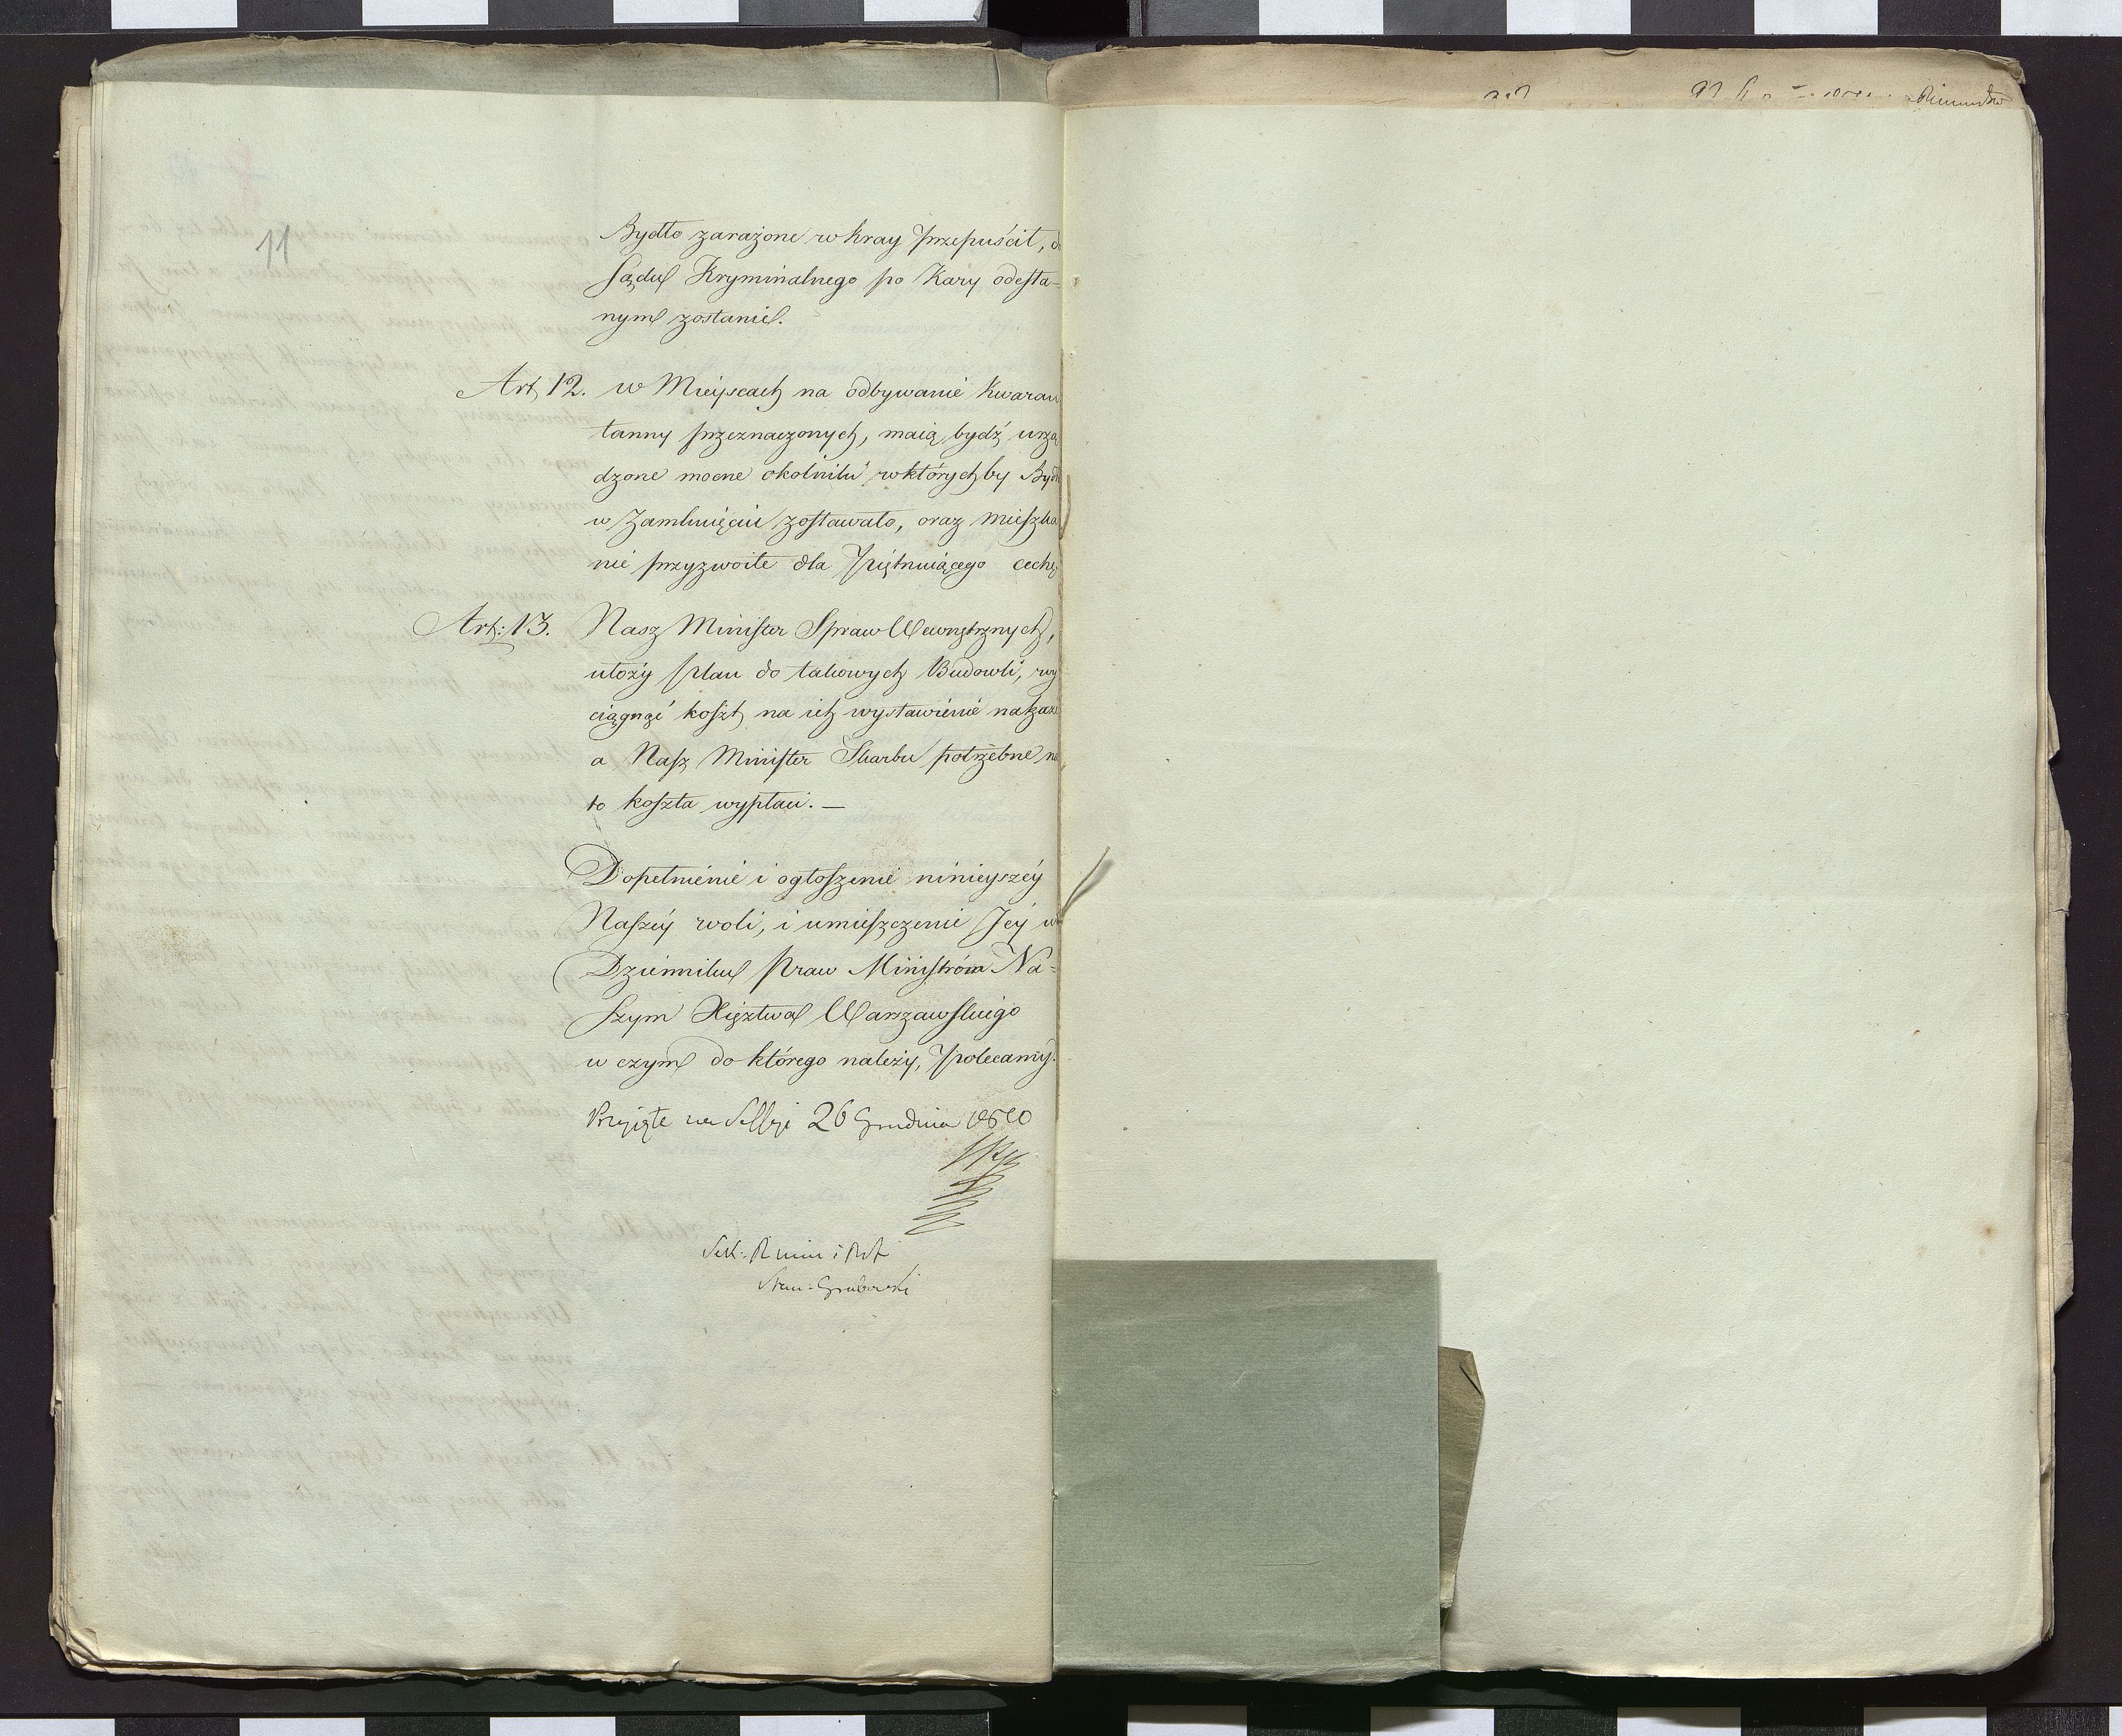 11
Bydło zarażone w kray przepuścił, d
Sądu Kryminalnego po Kary odesła-
nym zostanie.
Art. 12. w Mieyscach na odbywanie Kwaran
tanny przeznaczonych, maią bydź urzą
dzone mocne okolniki w którychby Bydł
w Zamknięciu zostawało, oraz mieszka
nie przyzwoite dla Piętnuiącego cechę
Art: 13. Nasz Minister Spraw Wewnętrznych,
ułoży plan do takowych Budowli, wy
ciągnąć koszt na ich wystawienie nakaże
a Nasz Minister Skarbu potrzebne na
to koszta wypłaci. —
Dopełnienie i ogłoszenie ninieyszéy
Naszéy woli, i umieszczenie Jéy w
Dzienniku Praw Ministróm Na-
szym Xięztwa Warszawskiego
w czym do którego należy, polecamy.
Przyięte na Sessyi 26 Grudnia 1810
Sek: R
Stan: Grabowski